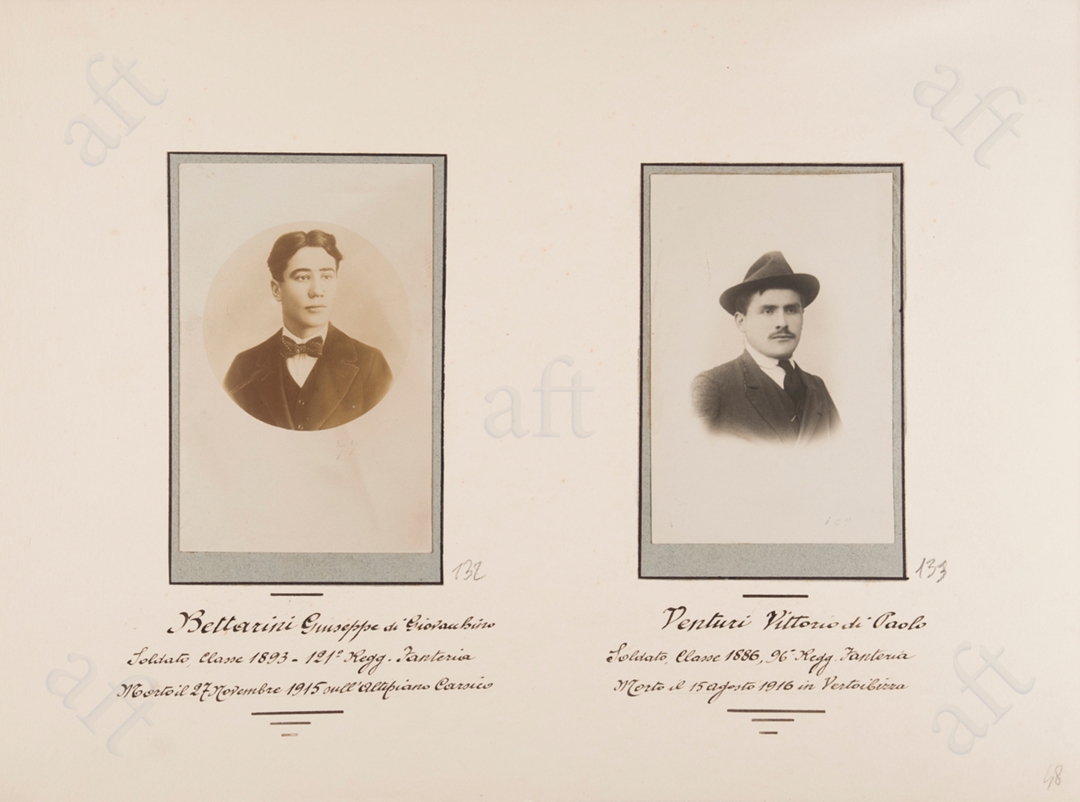 aft
aft
aft
132
133
Bettarini Giuseppe di Giovacchino
Soldato, Classe 1893 - 121° Regg. Fanteria
Morto il 27 Novembre 1915 sull'Altipiano Carsico
Venturi Vittorio di Paolo
Soldato, Classe 1886, 96° Regg. Fanteria
Morto il 15 agosto 1916 in
aft
aft
48